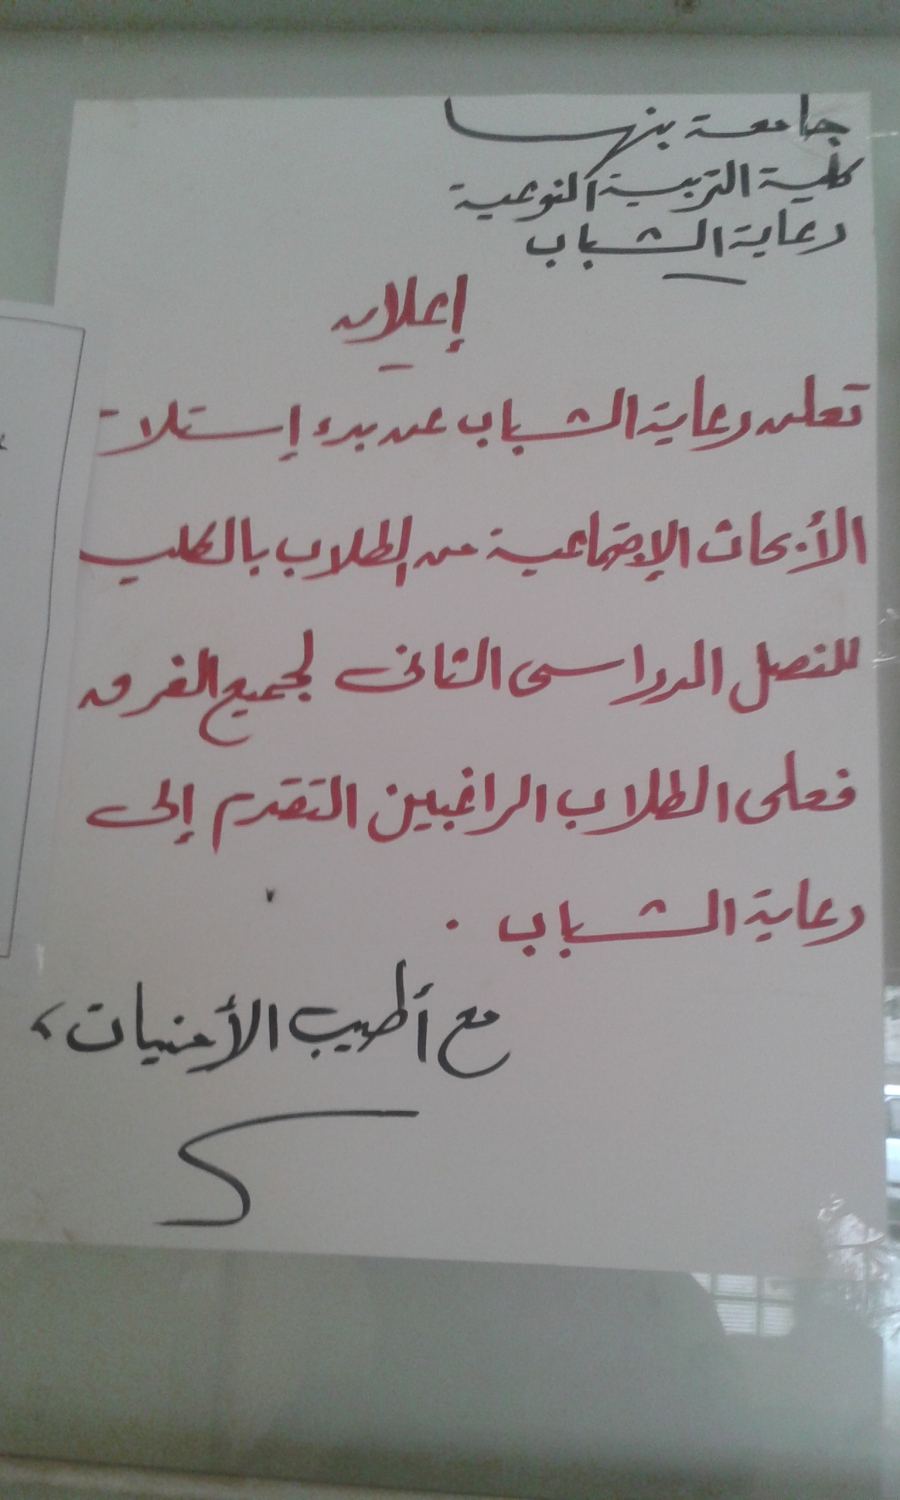 جامعة بنها
كلية التربية النوعية
رعاية الشباب
إعلان
تعلن رعاية الشباب عن بدء إستلا
الأبحاث الإجتماعية من الطلاب بالكلي
للفصل الدراسى الثانى لجميع الفرق
فعلى الطلاب الراغبين التقدم إلى
رعاية الشباب .
مع أطيب الأمنيات ،